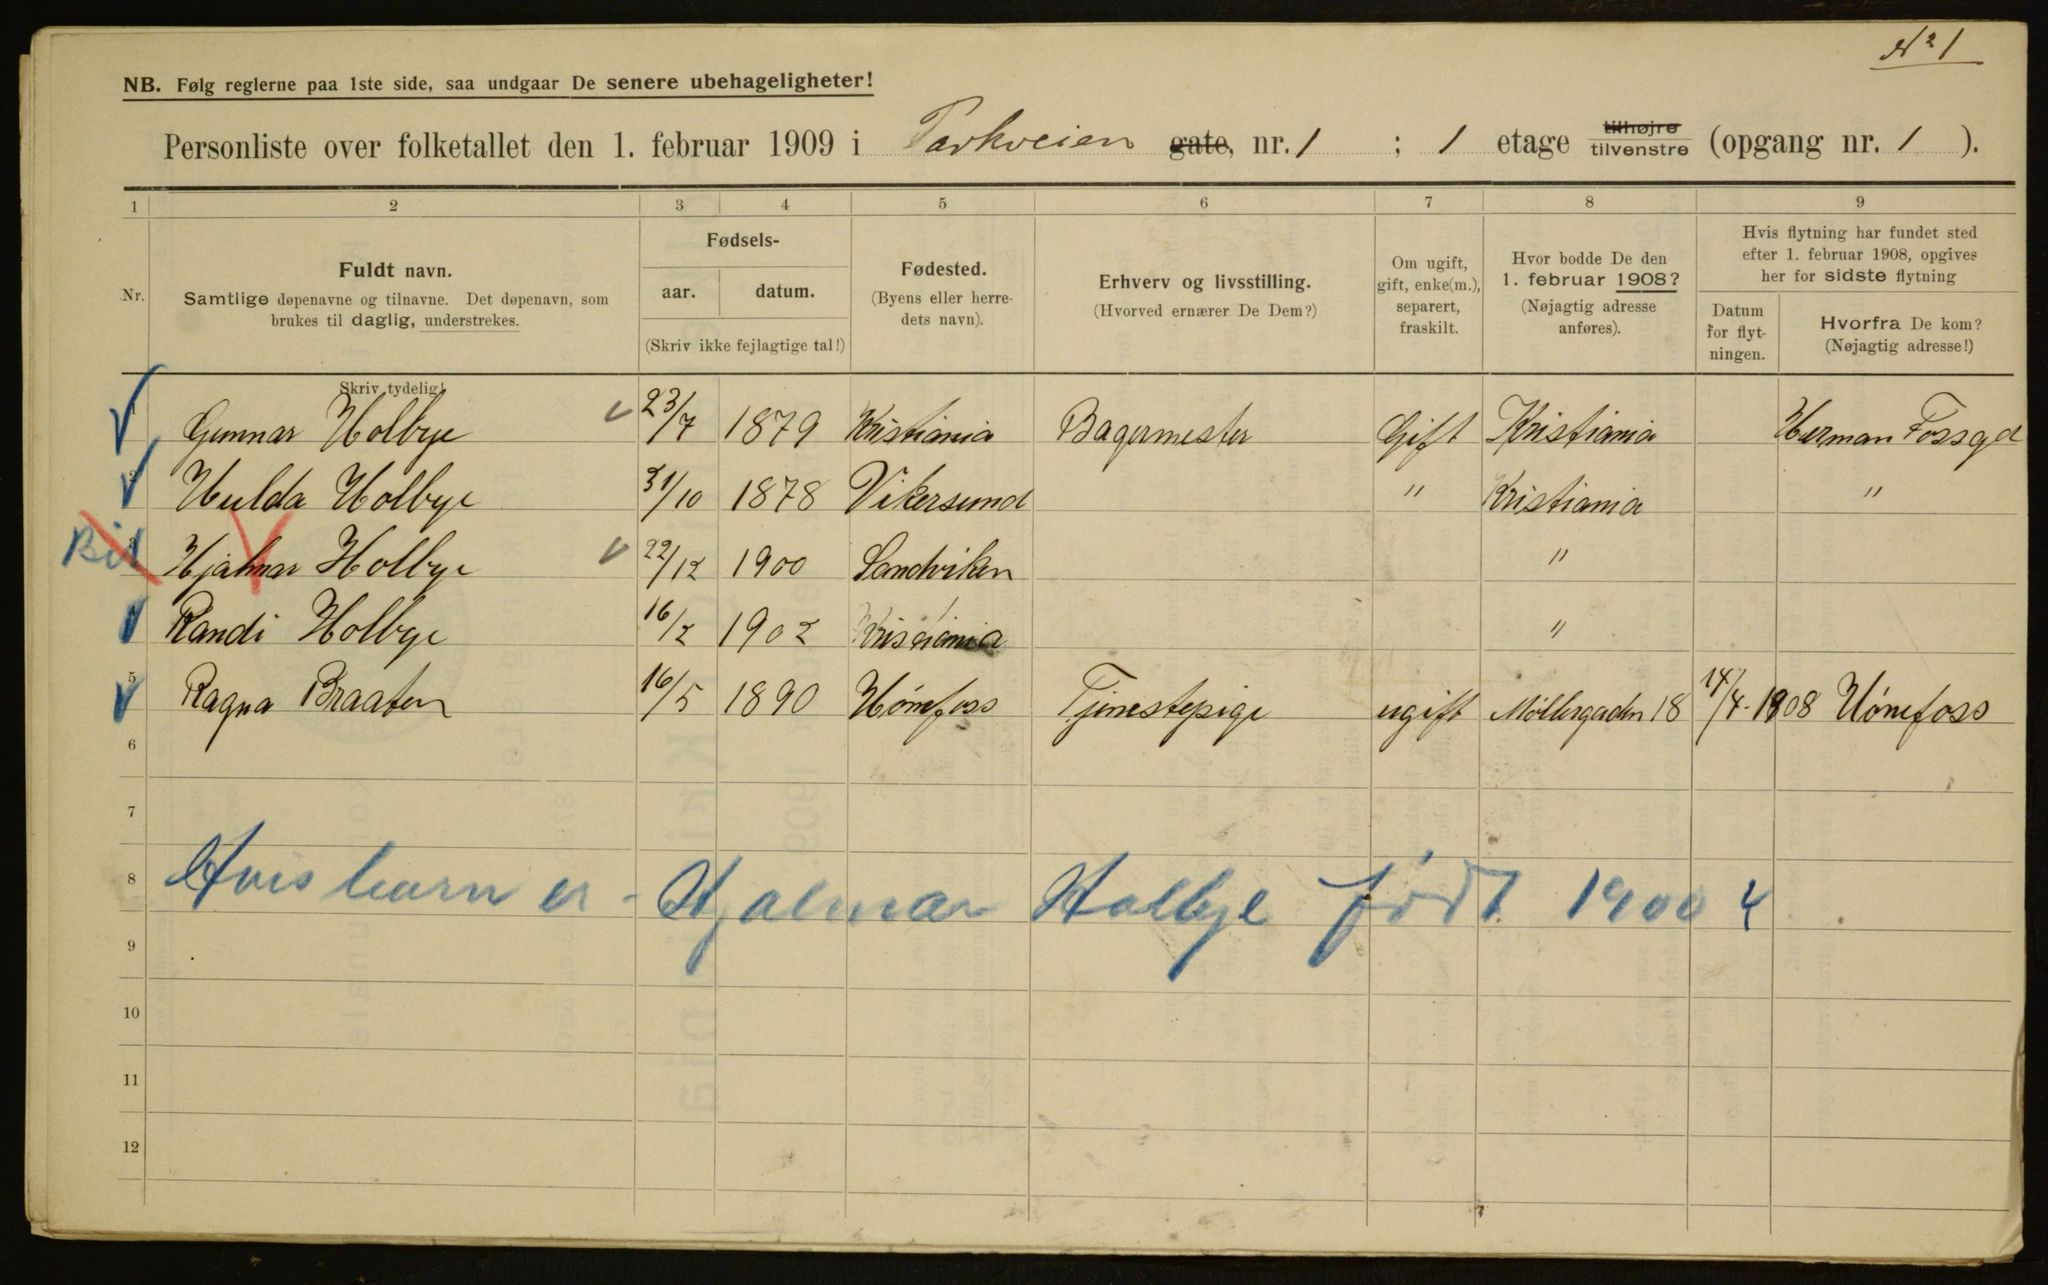 № 1
NB. Følg reglerne paa 1ste side, saa undgaar De senere ubehageligheter!
Personliste over folketallet den 1. februar 1909 i Parkveien gate, nr. 1 ; 1 etage tilhøjre tilvenstre (opgang nr. 1 ).
1 2 3 4 5 6 7 8 9
Nr.
Fuldt navn.
Samtlige døpenavne og tilnavne. Det døpenavn, som
brukes til daglig, understrekes.
Fødsels-
aar. datum.
(Skriv ikke fejlagtige tal!)
Fødested.
(Byens eller herre-
dets navn).
Erhverv og livsstilling.
(Hvorved ernærer De Dem?)
Om ugift,
gift, enke(m.),
separert,
fraskilt.
Hvor bodde De den
1. februar 1908?
(Nøjagtig adresse
anføres).
Hvis flytning har fundet sted
efter 1. februar 1908, opgives
her for sidste flytning
Datum
for flyt-
ningen.
Hvorfra De kom?
(Nøjagtig adresse!)
Skriv tydelig!
1 Gunnar Holbye 23/7 1879 Kristiania Bagermester Gift Kristiania Herman Fossgd
2 Hulda Holbye 31/10 1878 Vikersund " Kristiania "
3 Hjalmar Holbye 22/12 1900 Sandviken "
Randi Holbye 16/2 1902 Kristiania "
5 Ragna Braaten 16/5 1890 Hønefoss Tjenestepige ugift Møllergaden 18 14/4-1908 Hønefoss
6
7
8 Hvis barn er - Hjalmar Holbye født 1900 4
9
10
11
12